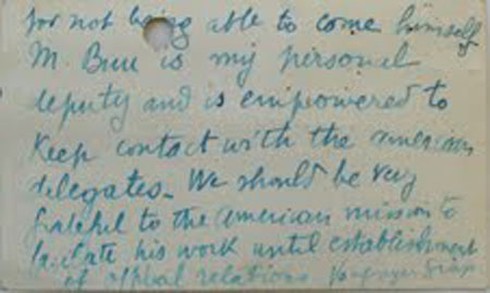 for not being able to come himself
M. Buu is my personal
deputy and is empowered to
Keep contact with the american
delegates_ We should be very
grateful to the american mission to
facilitate his work until establishment
of official relations. Vonguyen Giap